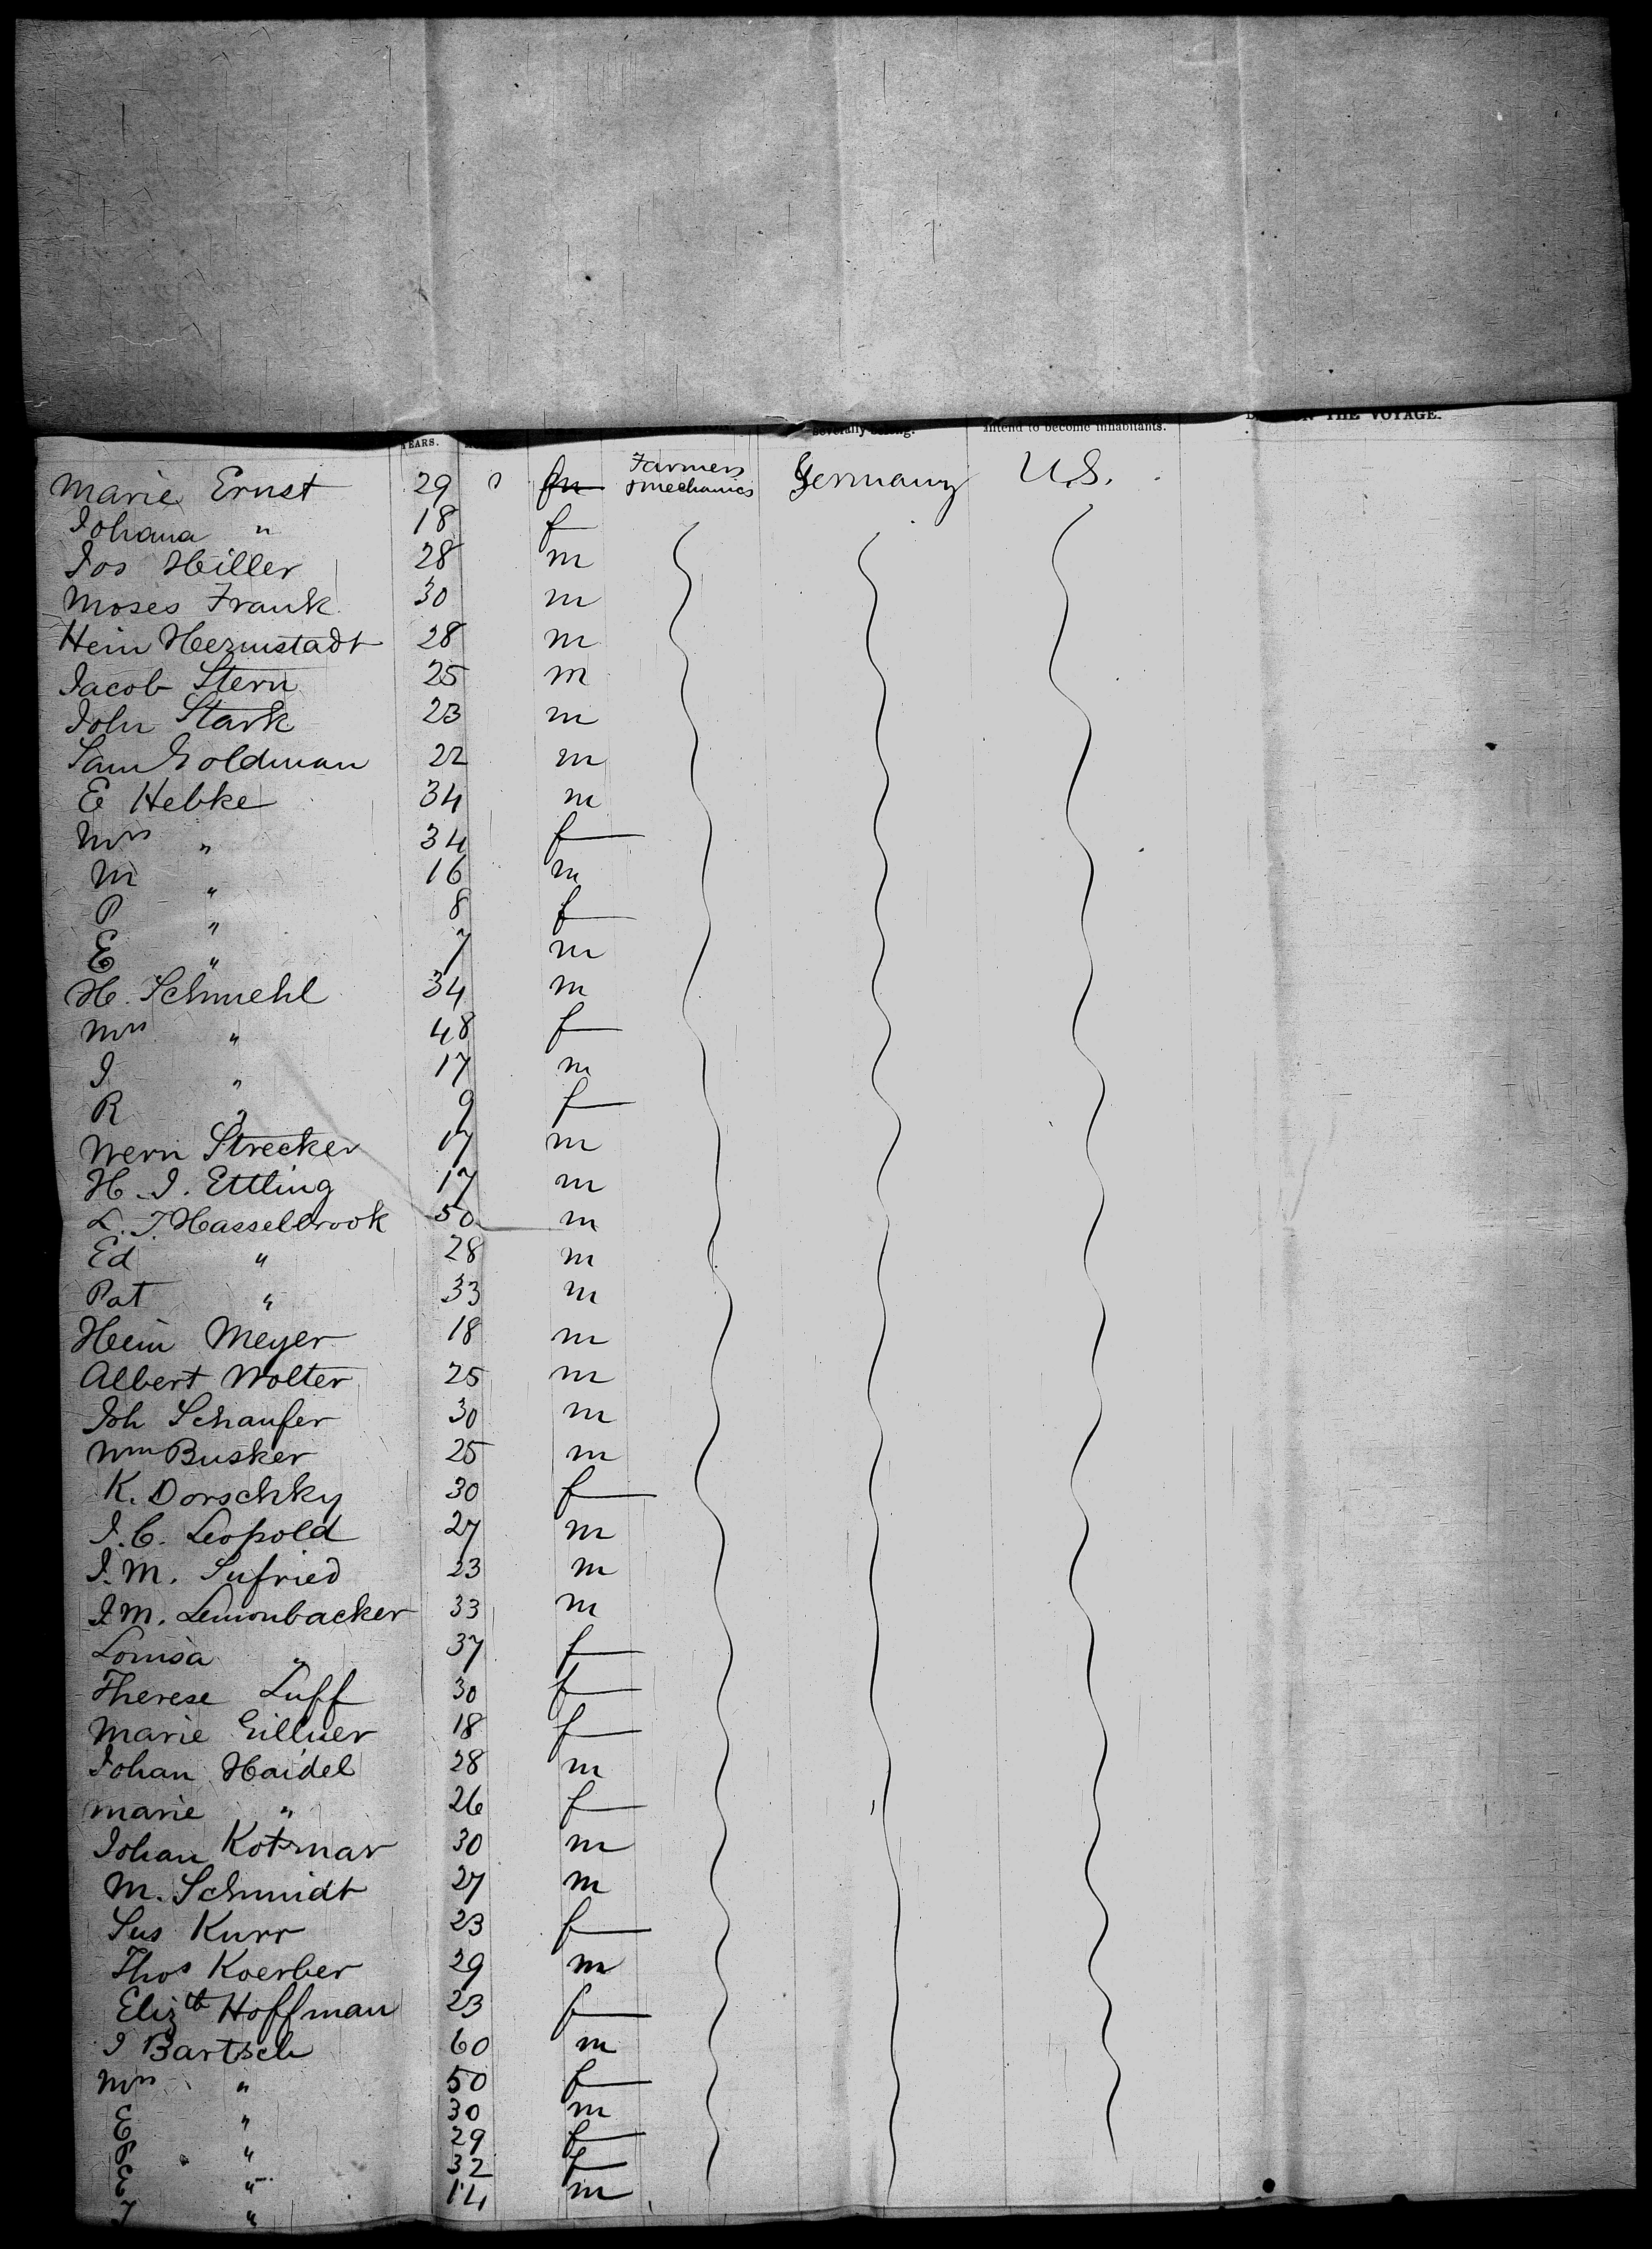 YEARS. severally belong. intend to become inhabitants. ON THE VOYAGE.
Marie Ernst 29 f Farmers & mechanics Germany U.S.
Johana " 18 f
Jos Hiller 28 m
Moses Frank 30 m
Hein Hermstadt 28 m
Jacob Stern 25 m
John Stark 23 m
Sam Goldman 22 m
E Hebke 34 m
Mrs " 34 f
M " 16 m
P " 8 f
E " 7 m
H. Schmehl 34 m
Mrs " 48 f
J " 17 m
R " 9 f
Wern Strecker 17 m
H. J. Ettling 17 m
L. J. Hasselbrook 50 m
Ed " 28 m
Pat " 33 m
Hein Meyer 18 m
Albert Wolter 25 m
Joh Schaufer 30 m
Wm Busker 25 m
K. Dorschky 30 f
J. C. Leopold 27 m
J. M. Sufried 23 m
J. M. Lemonbacker 33 m
Louisa " 37 f
Therese Luff 30 f
Marie Gillner 18 f
Johan Haidel 28 m
Marie " 26 f
Johan Kotsmar 30 m
M. Schmidt 27 m
Sus Kurr 23 f
Thos Koerber 29 m
Elizth Hoffman 23 f
J Bartsch 60 m
Mrs " 50 f
E " 30 m
P " 29 f
E " 32 f
J " 14 m